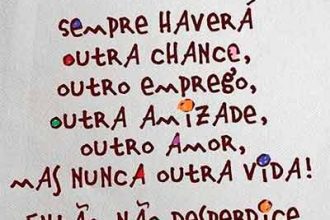 SEMPRE HAVERÁ
OUTRA CHANCE,
OUTRO EMPREGO,
OUTRA AMIZADE,
OUTRO AMOR,
MAS NUNCA OUTRA VIDA!
ENTÃO, NÃO DESPERDICE